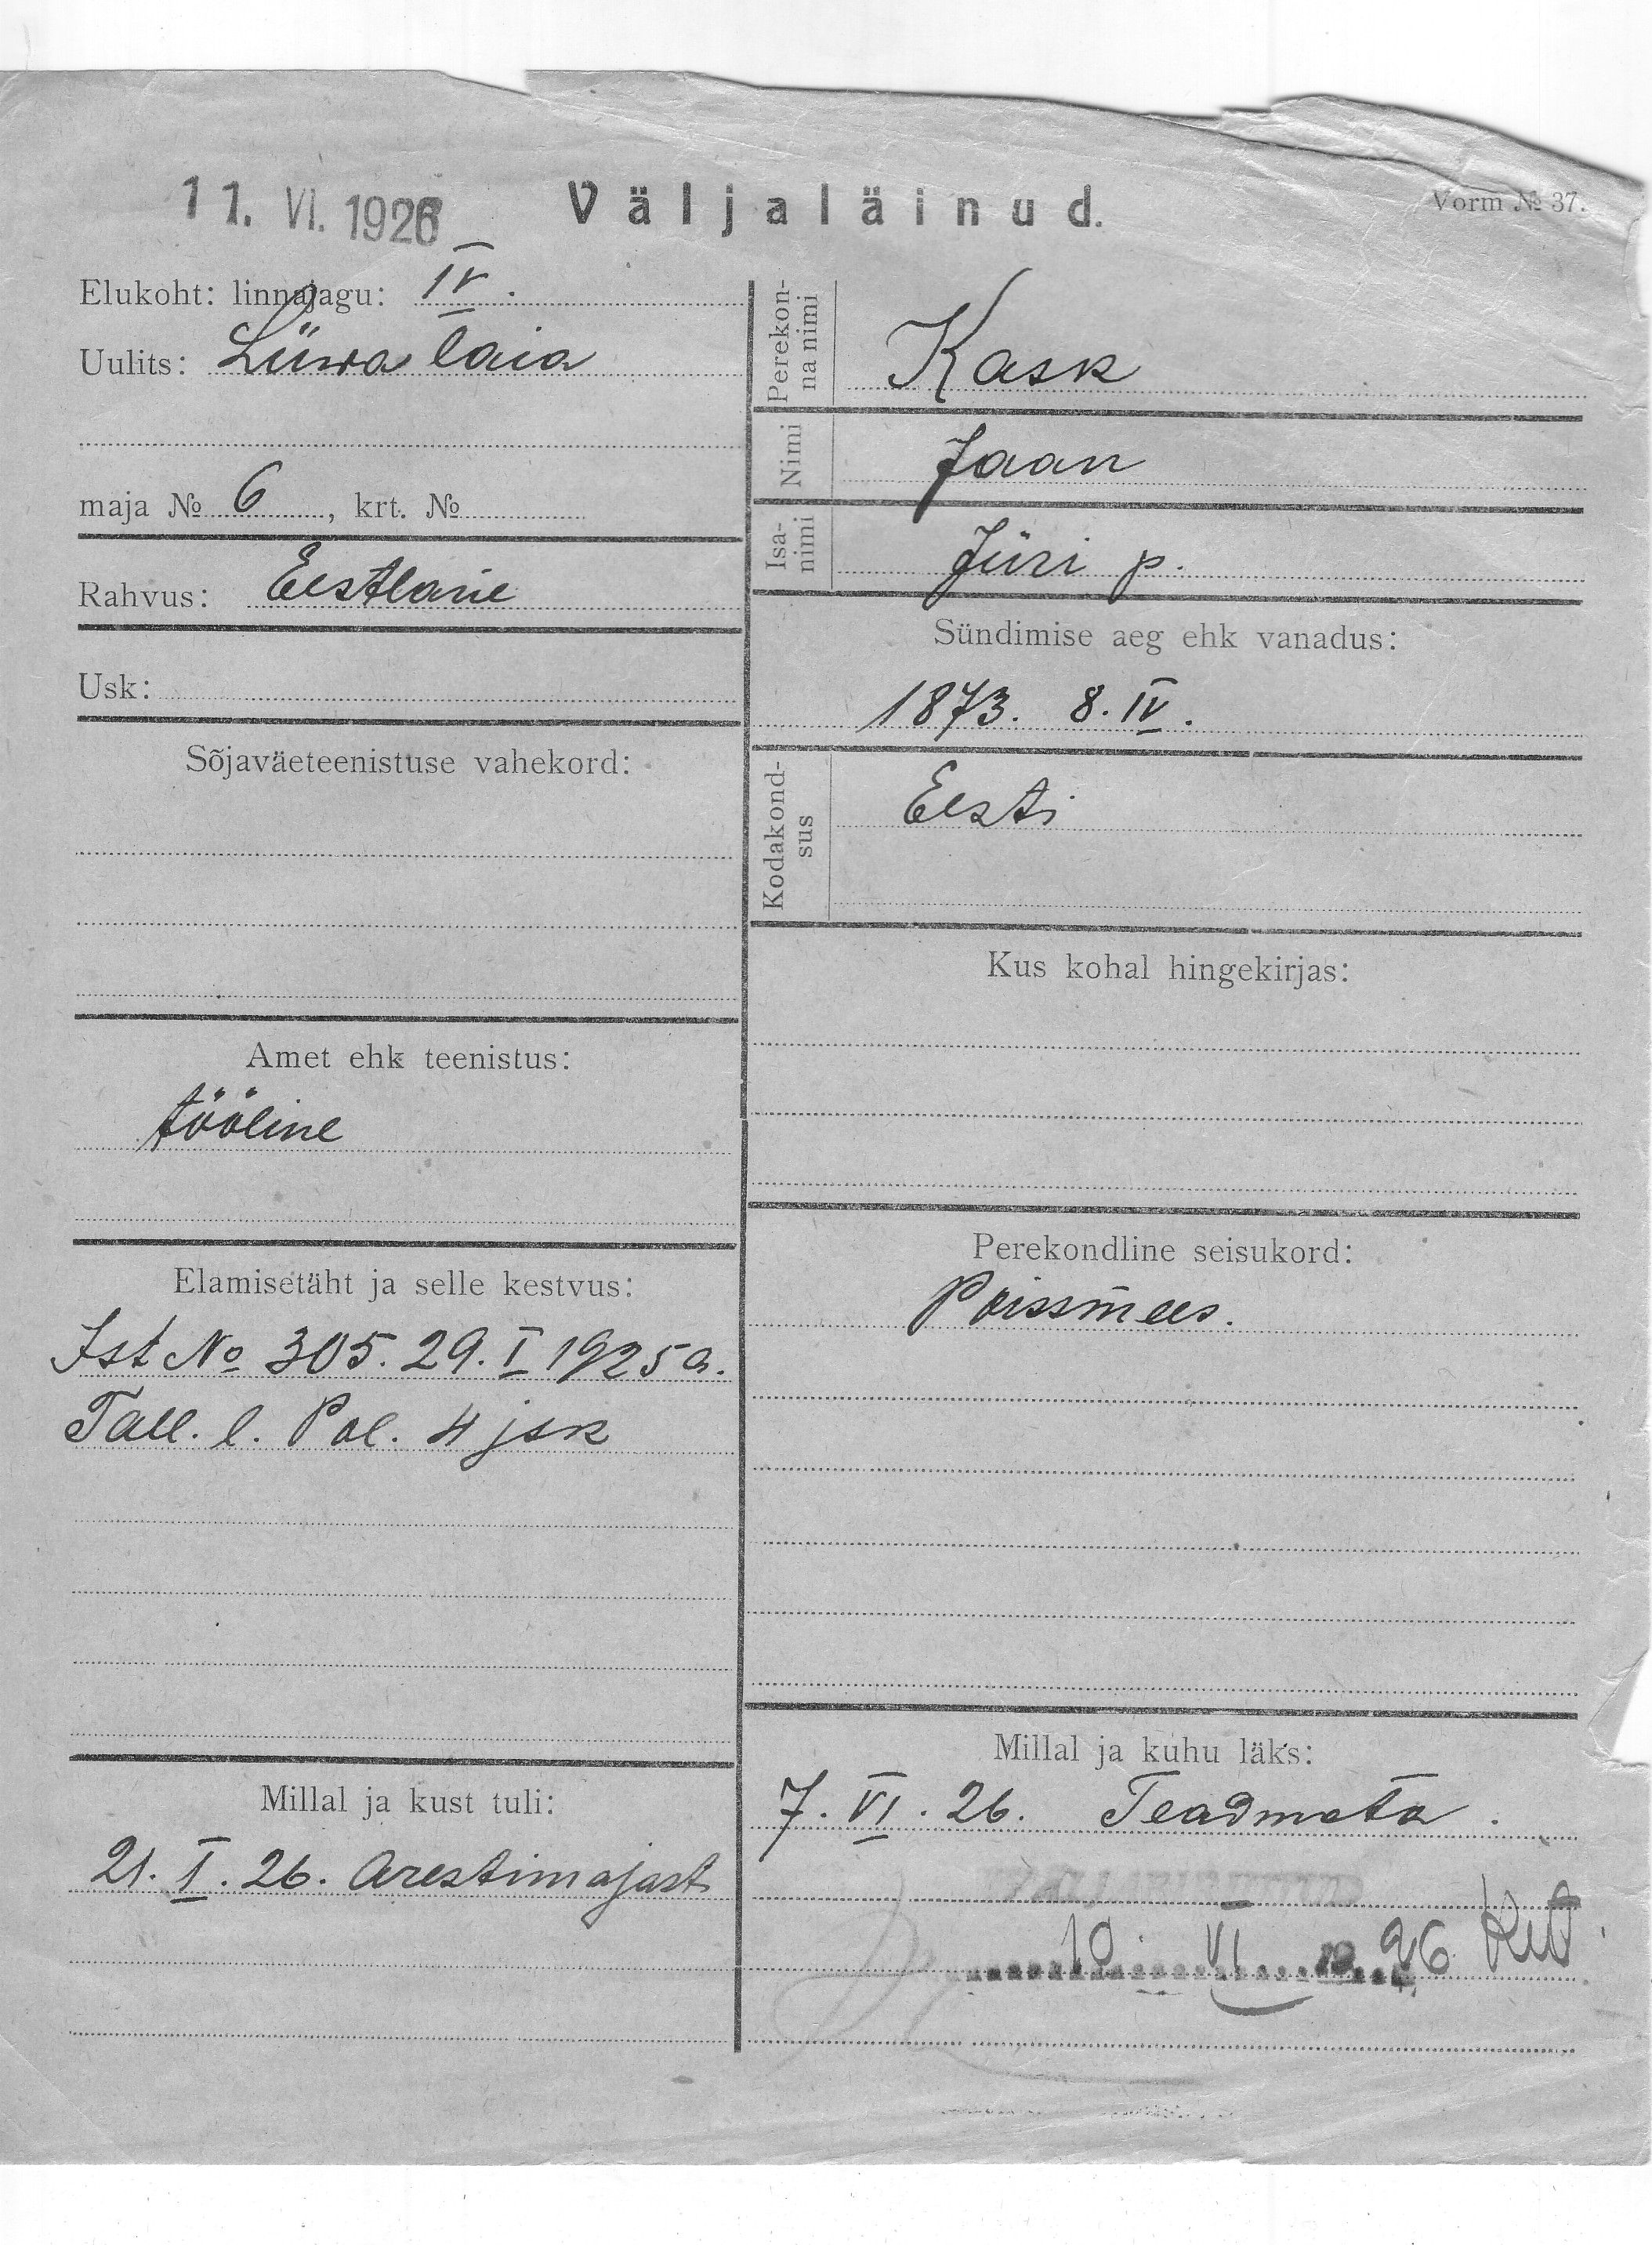 11. VI. 1926
Väljaläinud.
Vorm № 37.
Elukoht: linnajagu: IV.
Uulits: Liiwa laia
maja № 6, krt. №
Rahvus: Eestlane
Usk:
Sõjaväeteenistuse vahekord:
Amet ehk teenistus:
tööline
Elamisetäht ja selle kestvus:
Ist № 305. 29. I 1925 a.
Tall. l. Pol. 4 jsk
Millal ja kust tuli:
21. I. 26. Arestimajast
Perekonna nimi
Kask
Nimi
Jaan
Isanimi
Jüri p.
Sündimise aeg ehk vanadus:
1873. 8. IV.
Kodakondsus
Eesti
Kus kohal hingekirjas:
Perekondline seisukord:
Poissmees.
Millal ja kuhu läks:
7. VI. 26. Teadmata.
10. VI 1926